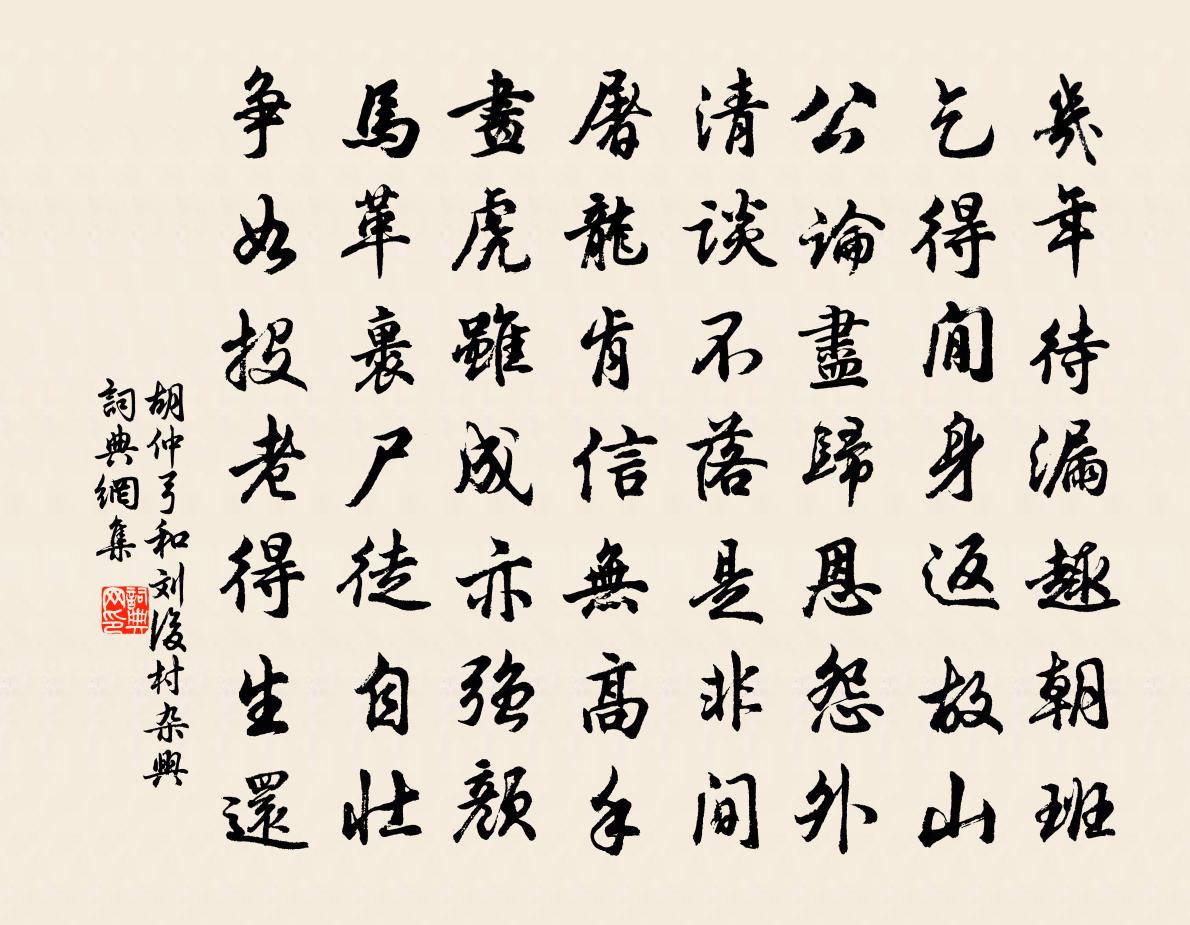 幾年待漏趣朝班
乞得閒身返故山
公論盡歸恩怨外
清談不落是非間
屠龍肯信無高手
畫虎雖成亦强顔
馬革裹尸徒自壯
爭如投老得生還
胡仲弓和刘後村杂興
詞典網集
詞典网印